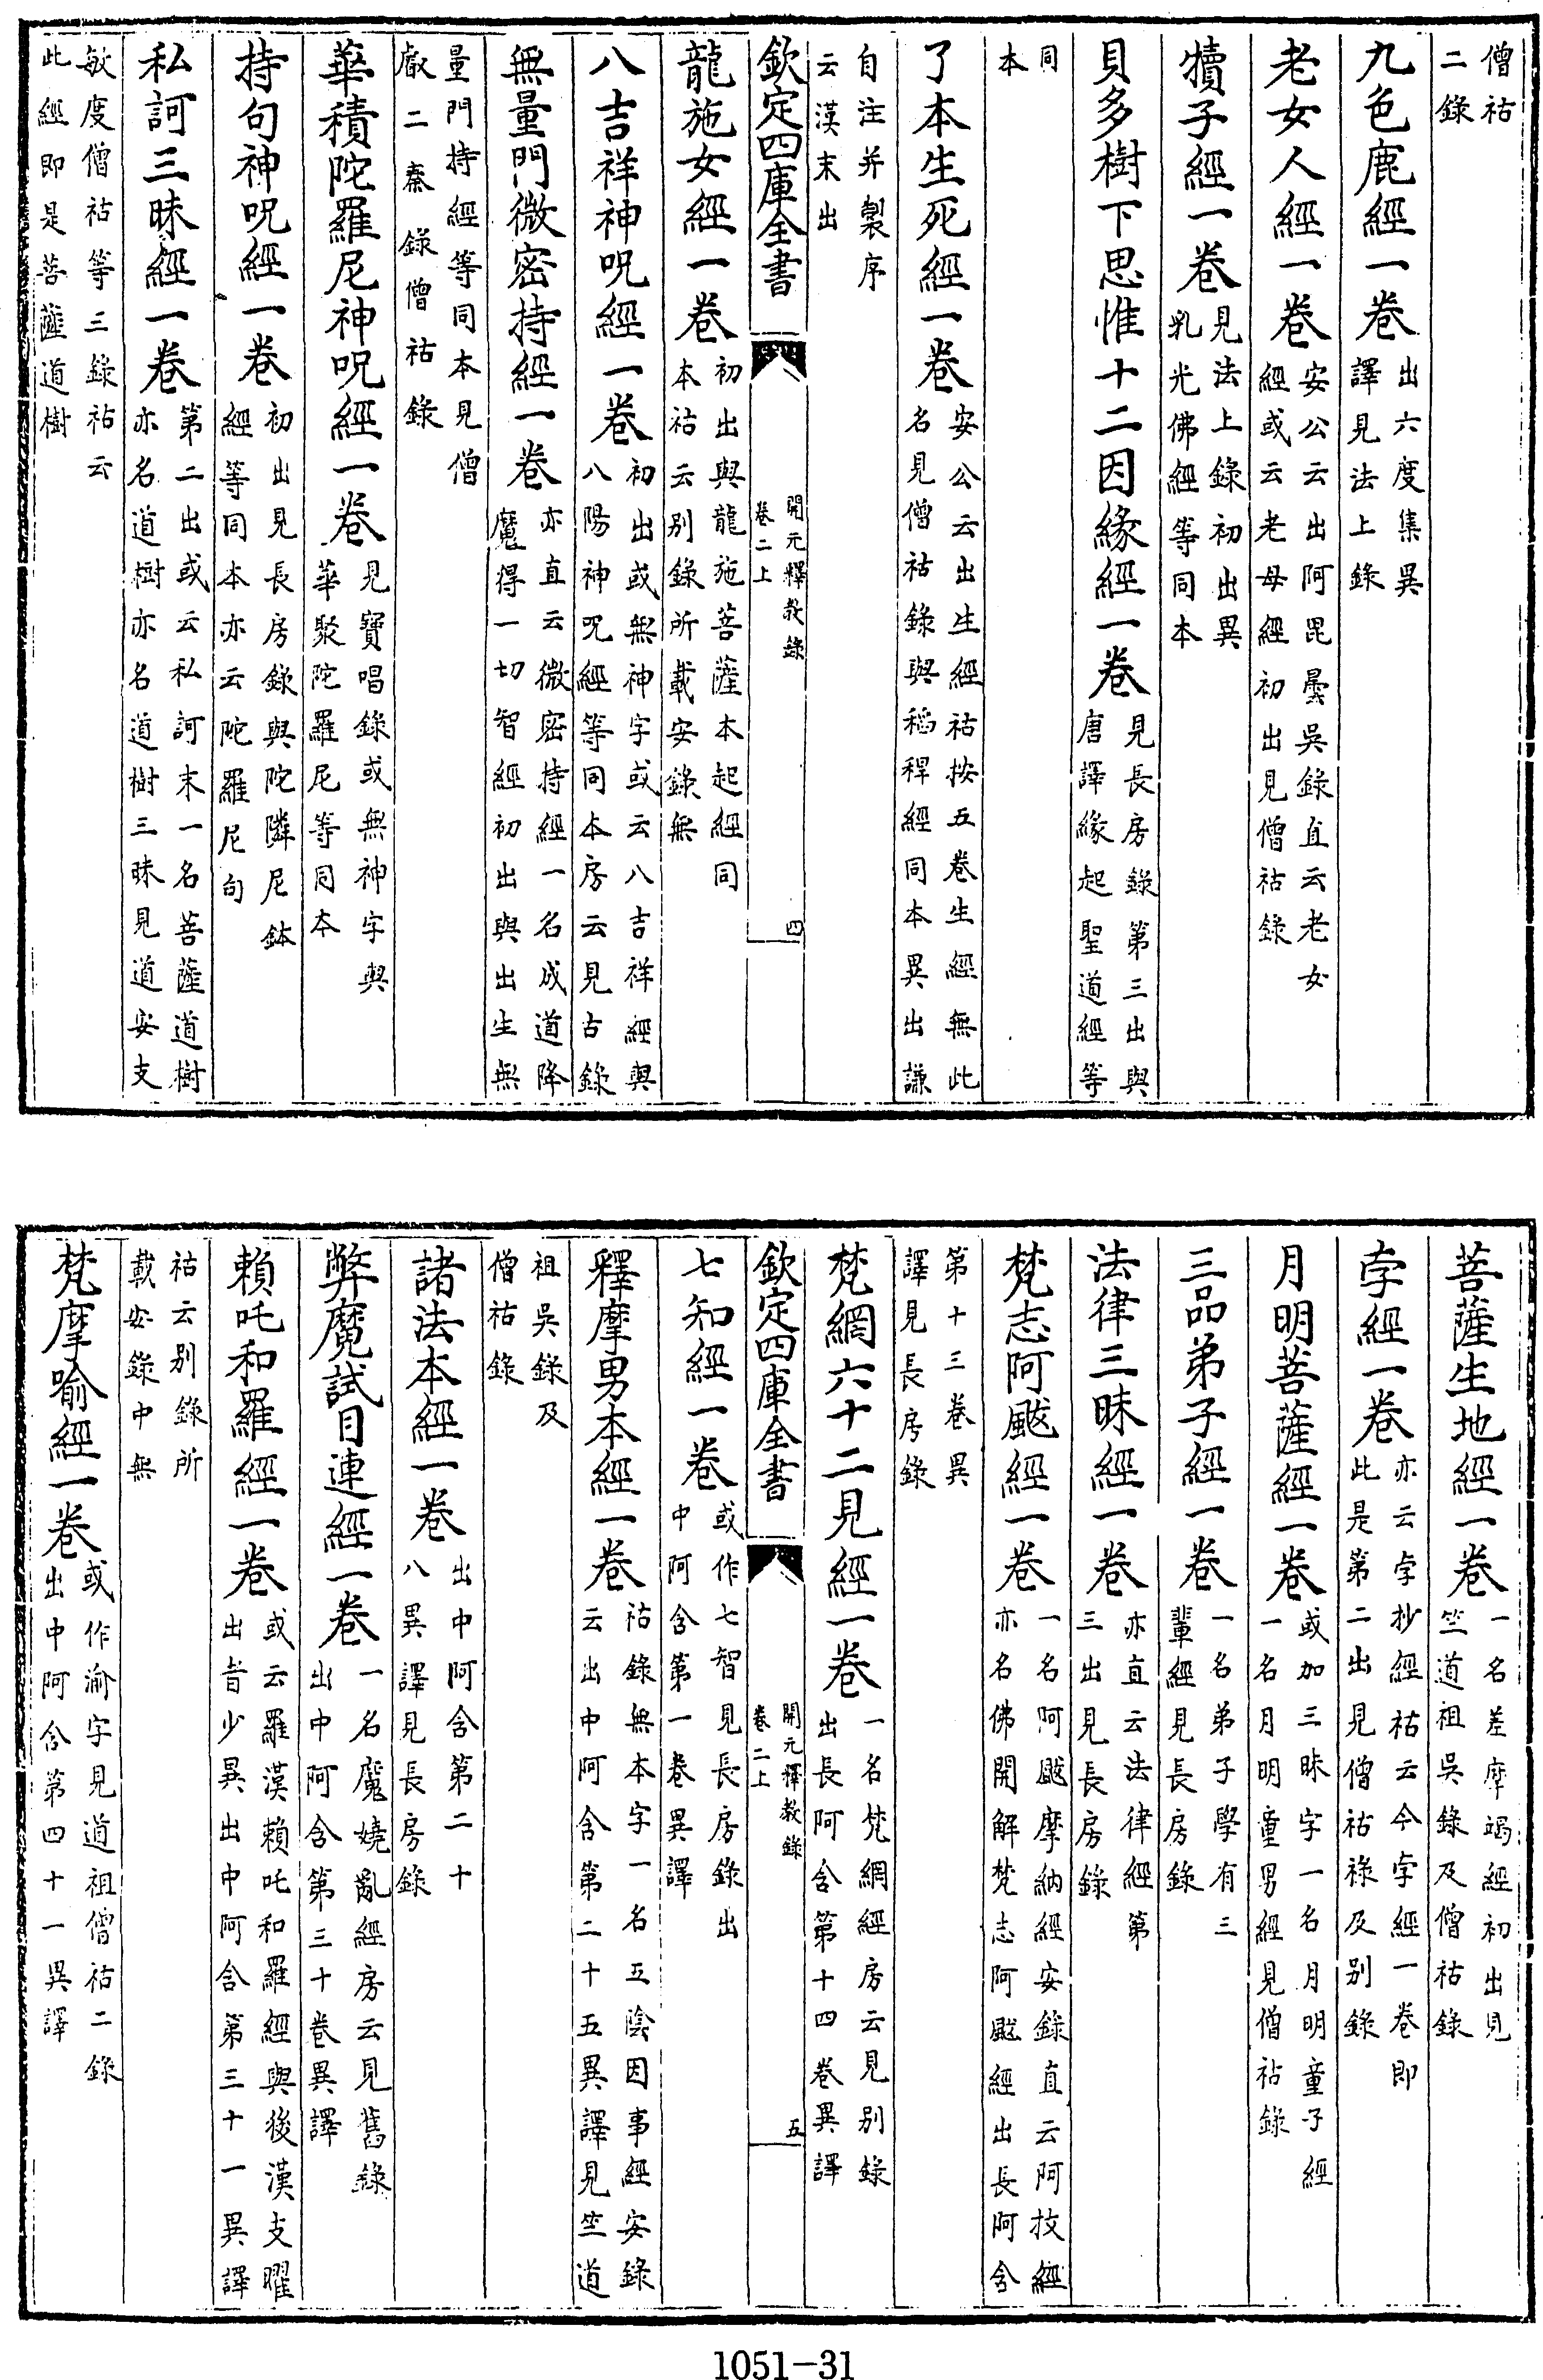 僧祐
二錄
九色鹿經一卷出六度集異
譯見法上錄
老女人經一卷安公云出阿毘曇吳錄直云老女
經或云老母經初出見僧祐錄
犢子經一卷見法上錄初出異
乳光佛經等同本
貝多樹下思惟十二因緣經一卷見長房錄第三出與
唐譯緣起聖道經等
同
本
了本生死經一卷安公云出生經祐按五卷生經無此
名見僧祐錄與稻稈經同本異出謙
自注并製序
云漢末出
欽定四庫全書
開元釋教錄
卷二上
四
龍施女經一卷初出與龍施菩薩本起經同
本祐云別錄所載安錄無
八吉祥神呪經一卷初出或無神字或云八吉祥經與
八陽神呪經等同本房云見古錄
無量門微密持經一卷亦直云微密持經一名成道降
魔得一切智經初出與出生無
量門持經等同本見僧
叡二秦錄僧祐錄
華積陀羅尼神呪經一卷見寶唱錄或無神字與
華聚陀羅尼等同本
持句神呪經一卷初出見長房錄與陀隣尼鉢
經等同本亦云陀羅尼句
私訶三昧經一卷第二出或云私訶末一名菩薩道樹
亦名道樹亦名道樹三昧見道安支
敏度僧祐等三錄祐云
此經即是菩薩道樹
菩薩生地經一卷一名差摩竭經初出見
竺道祖吳錄及僧祐錄
孛經一卷亦云孛抄經祐云今孛經一卷即
此是第二出見僧祐祿及别錄
月明菩薩經一卷或加三昧字一名月明童子經
一名月明童男經見僧祐錄
三品弟子經一卷一名弟子學有三
輩經見長房錄
法律三昧經一卷亦直云法律經第
三出見長房錄
梵志阿颰經一卷一名阿颰摩納經安錄直云阿技經
亦名佛開解梵志阿颰經出長阿含
第十三卷異
譯見長房錄
梵網六十二見經一卷一名梵網經房云見别錄
出長阿含第十四卷異譯
欽定四庫全書
開元釋教錄
卷二上
五
七知經一卷或作七智見長房錄出
中阿含第一卷異譯
釋摩男本經一卷祐錄無本字一名五陰因事經安錄
云出中阿含第二十五異譯見竺道
祖吳錄及
僧祐錄
諸法本經一卷出中阿含第二十
八異譯見長房錄
弊魔試目連經一卷一名魔嬈亂經房云見舊錄
出中阿含第三十卷異譯
賴吒和羅經一卷或云羅漢賴吒和羅經與後漢支曜
出者少異出中阿含第三十一異譯
祐云别錄所
載安錄中無
梵摩喻經一卷或作渝字見道祖僧祐二錄
出中阿含第四十一異譯
1051-31